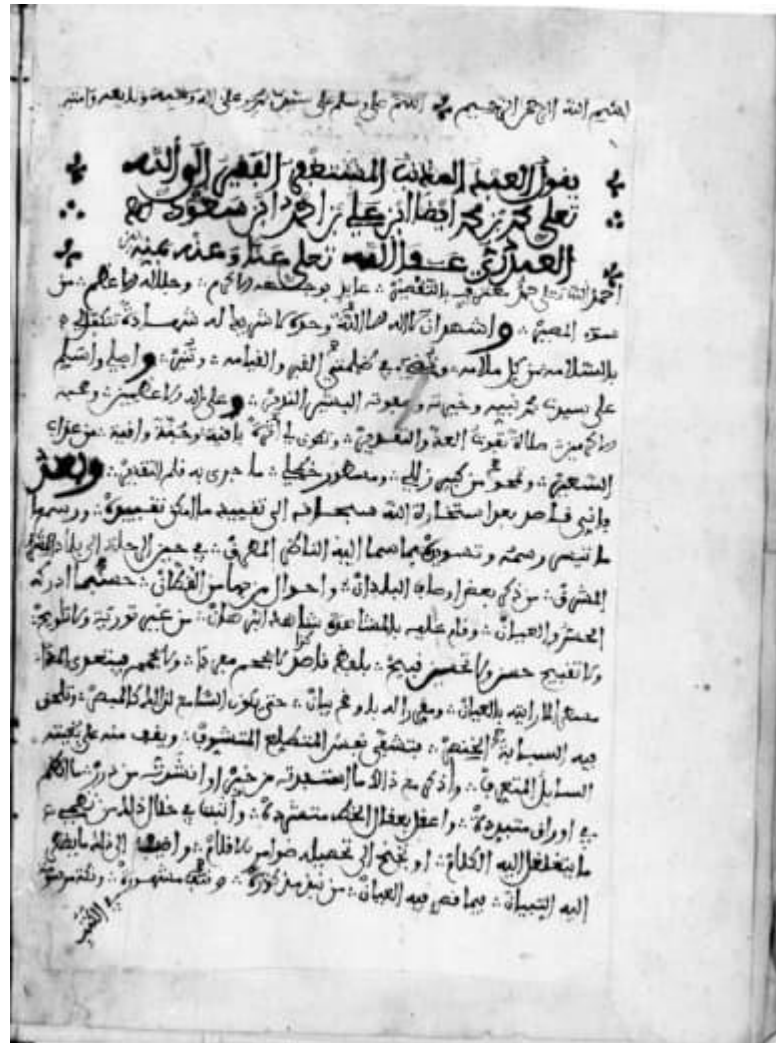 بسم الله الرحمن الرحيم اللهم صل وسلم على سيدنا محمد وعلى آله وصحبه
يقول العبد المذنب المستغفر الفقير إلى الله
تعلى محمد بن محمد ايضا ابن علي بن احمد ابن سعود
العبدري عفا الله تعلى عنا وعنه بمنه
احمد الله تعلى حمد معترف بالتقصير عايذ بوجهه الاكرم وجلاله الاعظم من
سوء المصير واشهد ان لا اله الا الله وحده لا شريك له شهادة تتكفل
بالسلامة من كل ملامه وتضيء في ظلمتي القبر والقيامه وتنير واصلي واسلم
على سيدنا محمد نبيه وخيرته وصفوته البشير النذير وعلى اله الاعظمين وصحبه
الاكرمين صلاة تفوت العد والتقدير وتكون لي جنة باقية وجنة واقية من عذاب
السعير وتمحو من كبير زللي ومسطور خطئي ما جرى به قلم التقدير وبعد
فاني قاصد بعد استخارة الله سبحانه الى تقييد ما امكن تقييده ورسم ما
تيسر رسمه وتسويده مما سما اليه الناظر المطرق في حين الرحلة الى بلاد
المشرق من ذكر بعض اوصاف البلدان واحوال من بها من القطان حسبما ادركه
الحس والعيان وقام عليه بالمشاهدة شاهد البرهان من غير تورية ولا تلويح
ولا تقبيح حسن ولا تحسين قبيح بلفظ قاصد لا يحجم معردا ولا يجمح فيتعدى المدا
مسطرا لما رايته بالعيان ومقررا له باوضح بيان حتى يكون السامع لذلك كالمبصر وتلحق
فيه السبابة الخنصر فتشفى نفس المتطلع المتشوف ويقف منه على بغيته
السايل المتعرف واذكر مع ذلك ما استفدته من خبر او انشدته من درر
في اوراق متبددة واعقل بعقال الخط متشردة واثبت في خلال ذلك من نظمي
ما يتغلغل اليه الكلام او تجنح الى تحصيله ضوامر الاقلام واضيف الى ذلك ما يضطر
اليه التبيان فيما قصر فيه العيان من نبذ مذكورة ونتف مشهورة ونكت
في الكتب